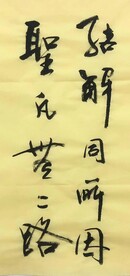 結解同所因
聖凡無二路